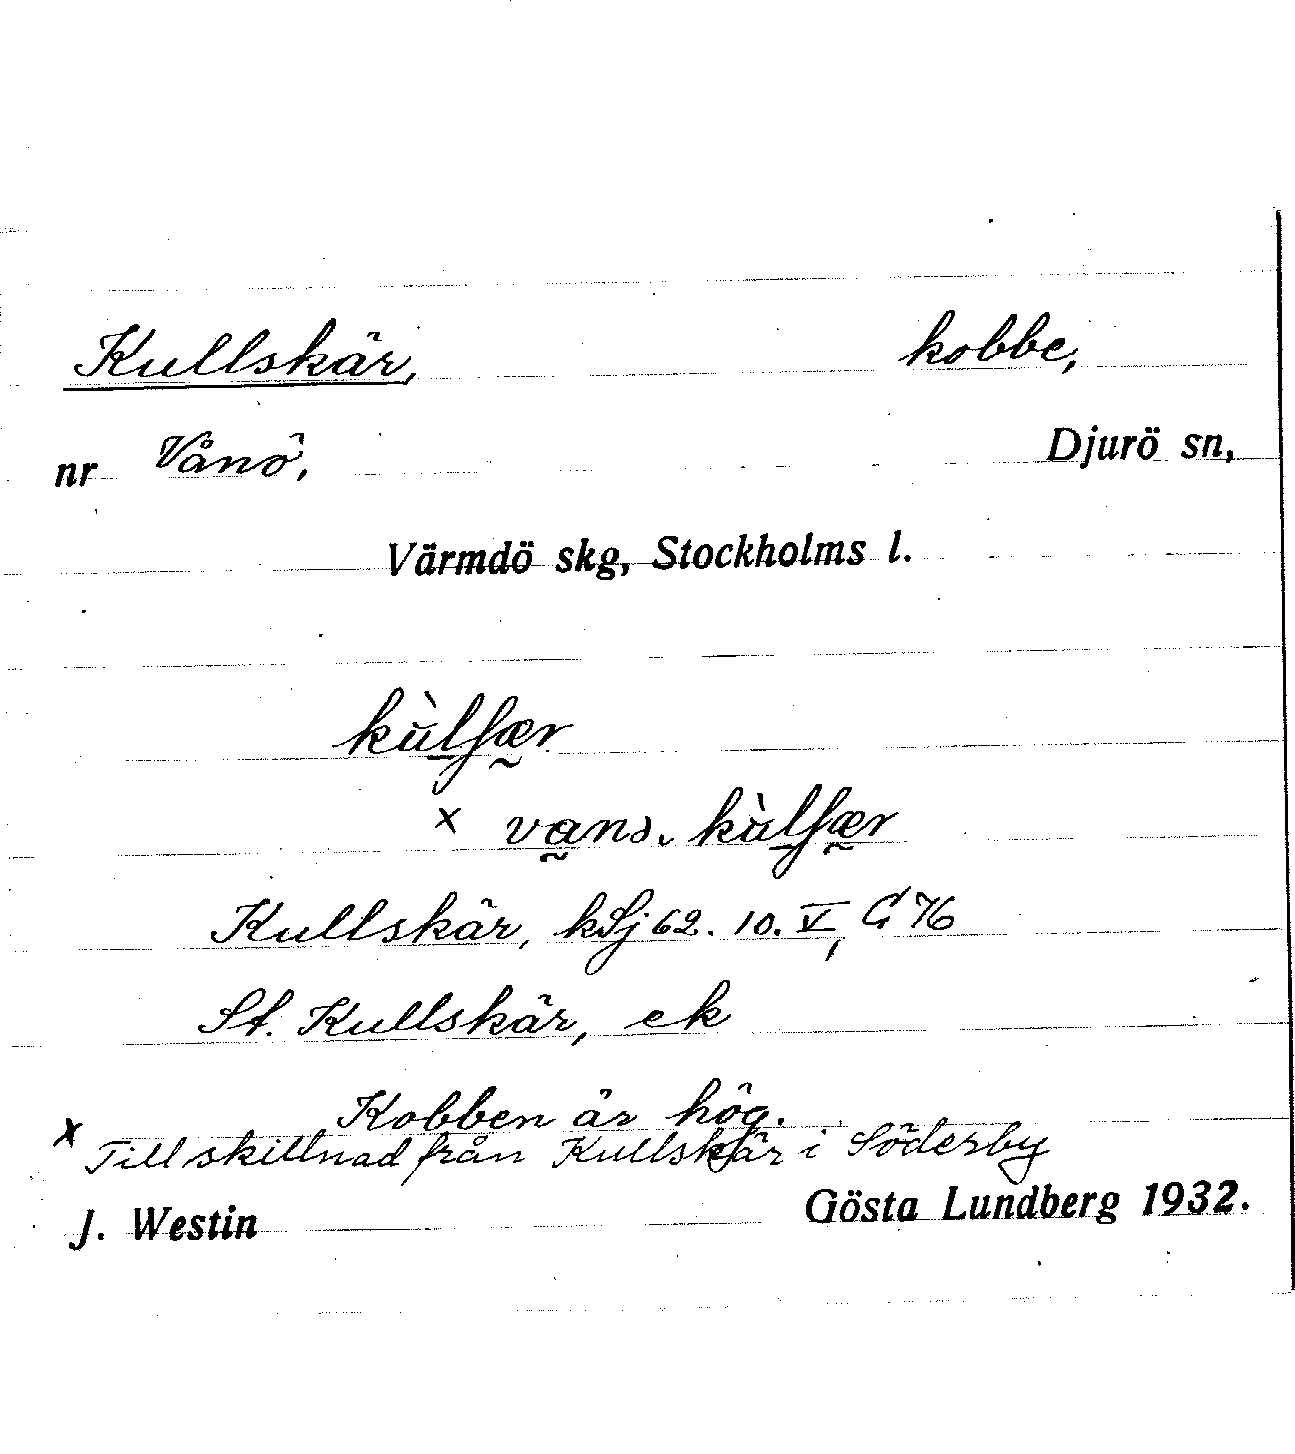 Kullskär, kobbe,
nr Vånö, Djurö sn,
Värmdö skg, Stockholms l.
kùlʃær
x vans. kùlʃær
Kullskär, kSj 62. 10. V, G 76
St. Kullskär, ek
Kobben är hög.
x Till skillnad från Kullskär i Söderby
J. Westin Gösta Lundberg 1932.